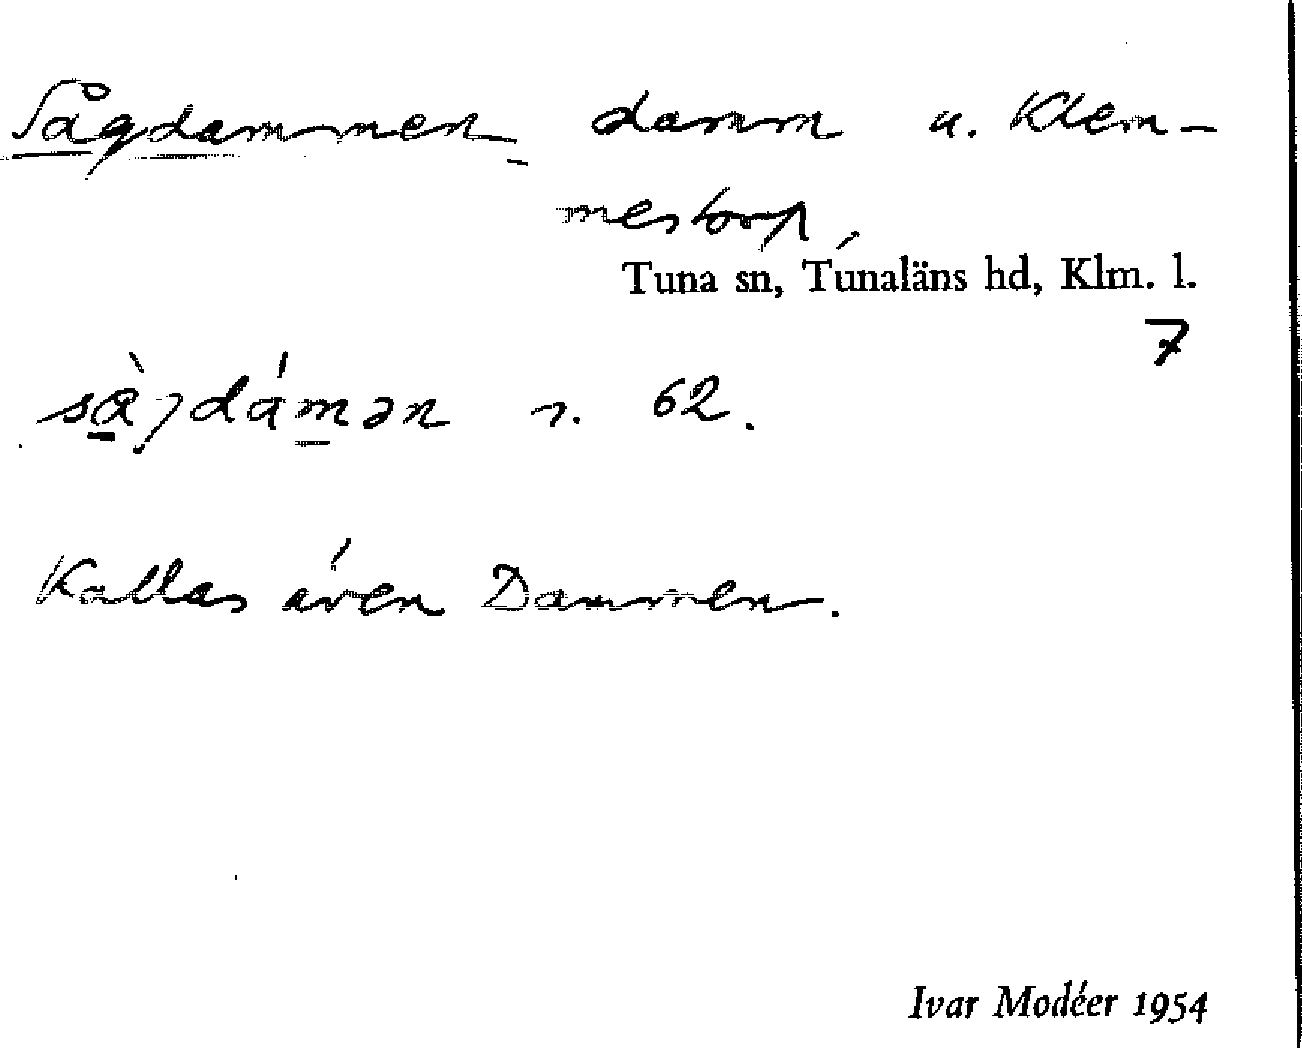 Sågdammen damm u. Klem-
mestorp,
Tuna sn, Tunaläns hd, Klm. l.
7
r. 62.
Kallas även Dammen.
Ivar Modéer 1954